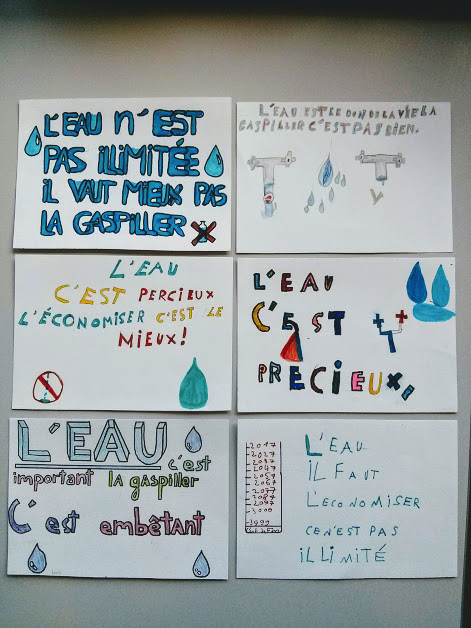 L'EAU n'EST
PAS ILLIMITÉE
IL VAUT MIEUX PAS
LA GASPILLER
L'EAU EST LE DON DE LA VIE LA
GASPILLER C'EST PAS BIEN.
L'EAU
C'EST PERCIEUX
L'ÉCONOMISER C'EST LE
MIEUX!
L'EAU
C'EST
PRECIEUX
L'EAU
c'est
important la gaspiller
C'est embêtant
L'EAU
IL FAUT
L'ECONOMISER
CE N'EST PAS
ILLIMITÉ
2017
2027
2037
2047
2057
2067
2077
2087
3000